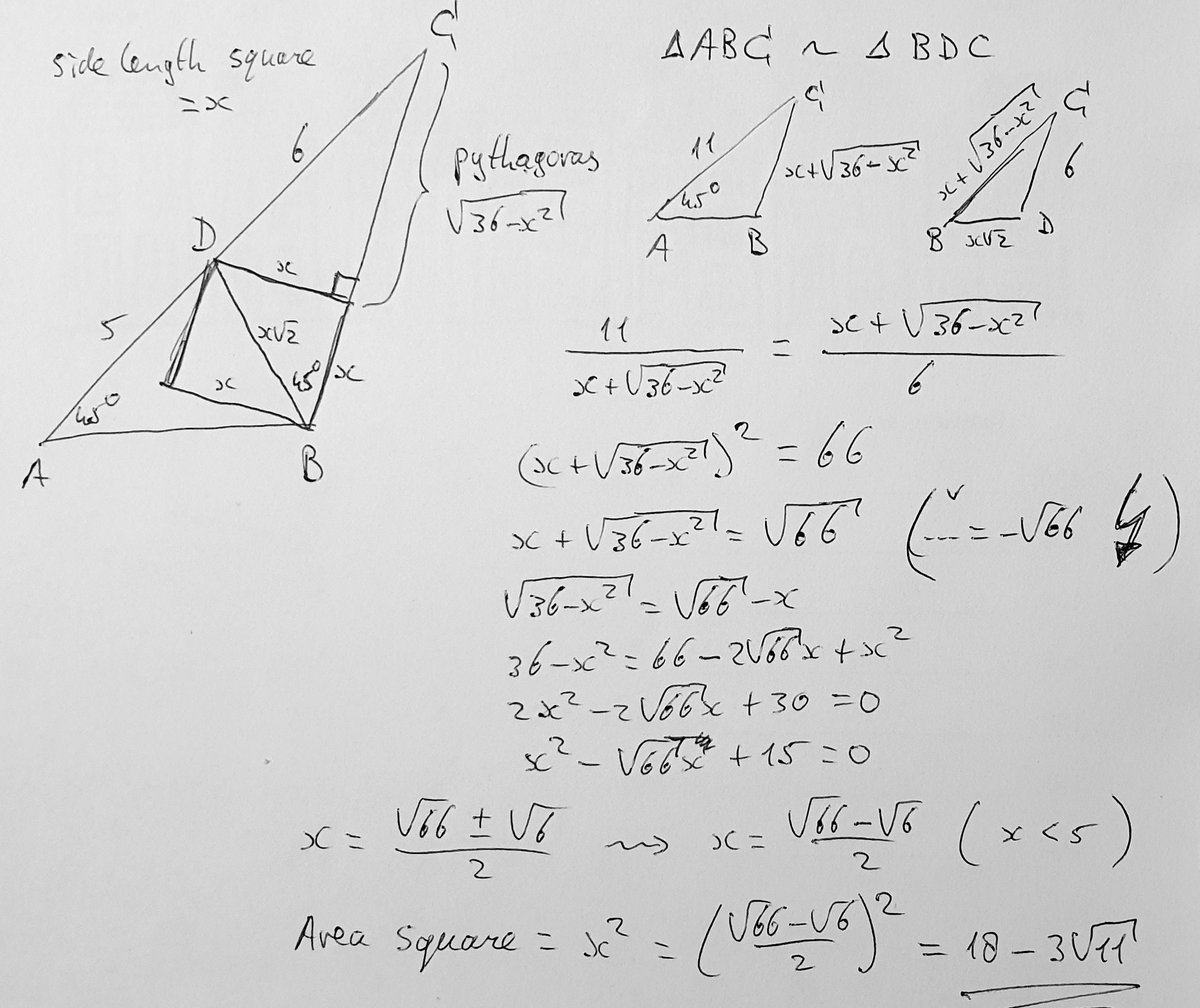 side length square
= x
C
6
pythagoras
√(36-x²)
D
x
5
x√2
x
45°
x
45°
A
B
ΔABC ~ ΔBDC
C
11
x+√(36-x²)
45°
A
B
C
x+√(36-x²)
6
B
x√2
D
11/(x+√(36-x²)) = (x+√(36-x²))/6
(x+√(36-x²))² = 66
x+√(36-x²) = √66 (˅ ... = -√66 ↯)
√(36-x²) = √66 - x
36-x² = 66 - 2√66x + x²
2x² - 2√66x + 30 = 0
x² - √66x + 15 = 0
x = (√66 ± √6)/2 ⇝ x = (√66 - √6)/2 (x < 5)
Area Square = x² = ((√66 - √6)/2)² = 18 - 3√11